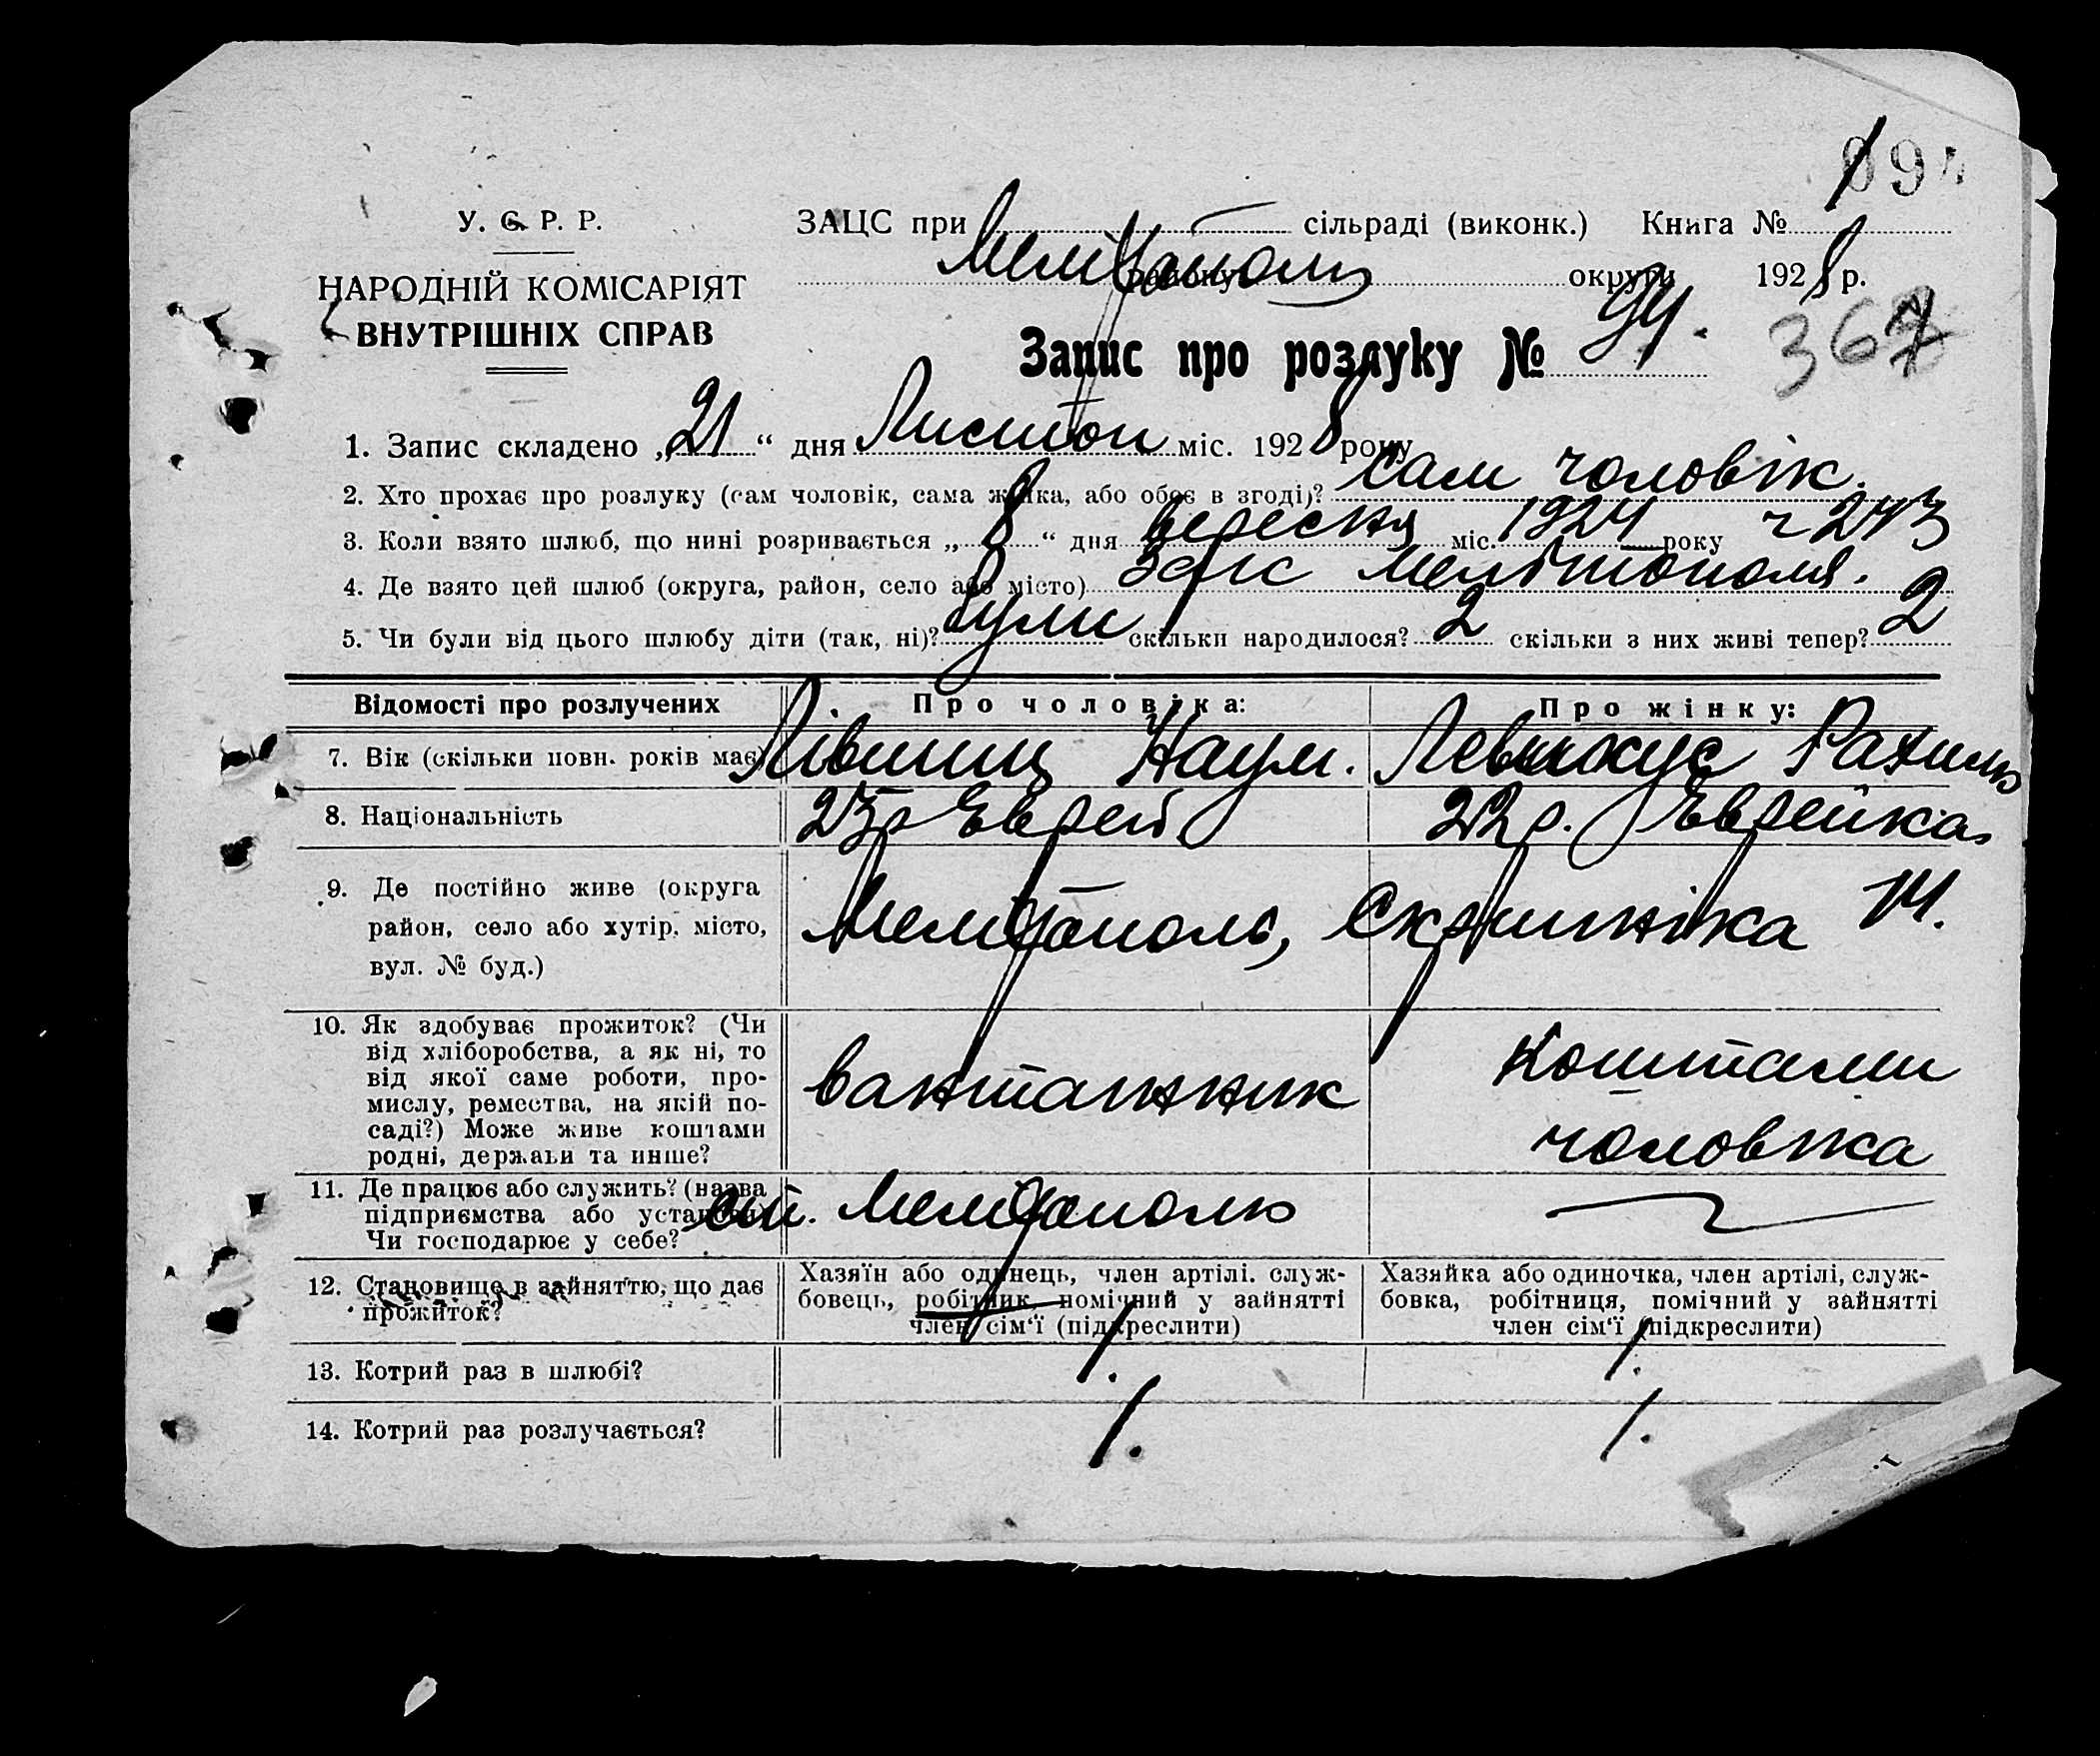 У. Є. Р. Р.
НАРОДНІЙ КОМІСАРІЯТ
ВНУТРІШНІХ СПРАВ
ЗАЦС при сільраді (виконк.) Книга № 1
Мелітополь району округи 1928 р.
Запис про розлуку № 94.
367
1. Запис складено „21“ дня Листоп міс. 1928 року
2. Хто прохає про розлуку (сам чоловік, сама жінка, або обоє в згоді)? сам чоловік.
3. Коли взято шлюб, що нині розривається „8“ дня вересня міс. 1924 року ч 243
4. Де взято цей шлюб (округа, район, село або місто) Мелітополя.
5. Чи були від цього шлюбу діти (так, ні)? були скільки народилося? 2 скільки з них живі тепер? 2
Відомості про розлучених Про чоловіка: Про жінку:
7. Вік (скільки повн. років має) Лівшиц Наум. Рахиль
8. Національність 25р Еврей 22р. Еврейка
9. Де постійно живе (округа
район, село або хутір, місто,
вул. № буд.)
Мелітополь, Скрипніка 14.
10. Як здобуває прожиток? (Чи
від хліборобства, а як ні, то
від якої саме роботи, про-
мислу, ремества, на якій по-
саді?) Може живе коштами
родні, держави та инше?
вантажник
Коштами
чоловіка
11. Де працює або служить? (назва
підприємства або установи
Чи господарює у себе?
ст. Мелітополь
12. Становище в зайняттю, що дає
прожиток?
Хазяїн або одинець, член артілі. служ-
бовець, робітник, помічний у зайнятті
член сім‘ї (підкреслити)
Хазяйка або одиночка, член артілі, служ-
бовка, робітниця, помічний у зайнятті
член сім‘ї (підкреслити)
13. Котрий раз в шлюбі? 1. 1.
14. Котрий раз розлучається? 1. 1.